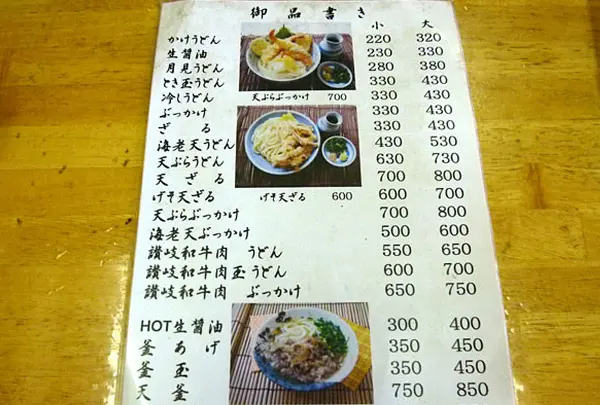 御品書き
小 大
かけうどん 220 320
生醤油 230 330
月見うどん 280 380
とき玉うどん 330 430
冷しうどん 330 430
天ぷらぶっかけ 700
ぶっかけ 330 430
ざる 330 430
海老天うどん 430 530
天ぷらうどん 630 730
天ざる 700 800
げそ天ざる 600 700
げそ天ざる 600
天ぷらぶっかけ 700 800
海老天ぶっかけ 500 600
讃岐和牛肉 うどん 550 650
讃岐和牛肉玉うどん 600 700
讃岐和牛肉 ぶっかけ 650 750
HOT生醤油 300 400
釜あげ 350 450
釜玉 350 450
天釜 750 850